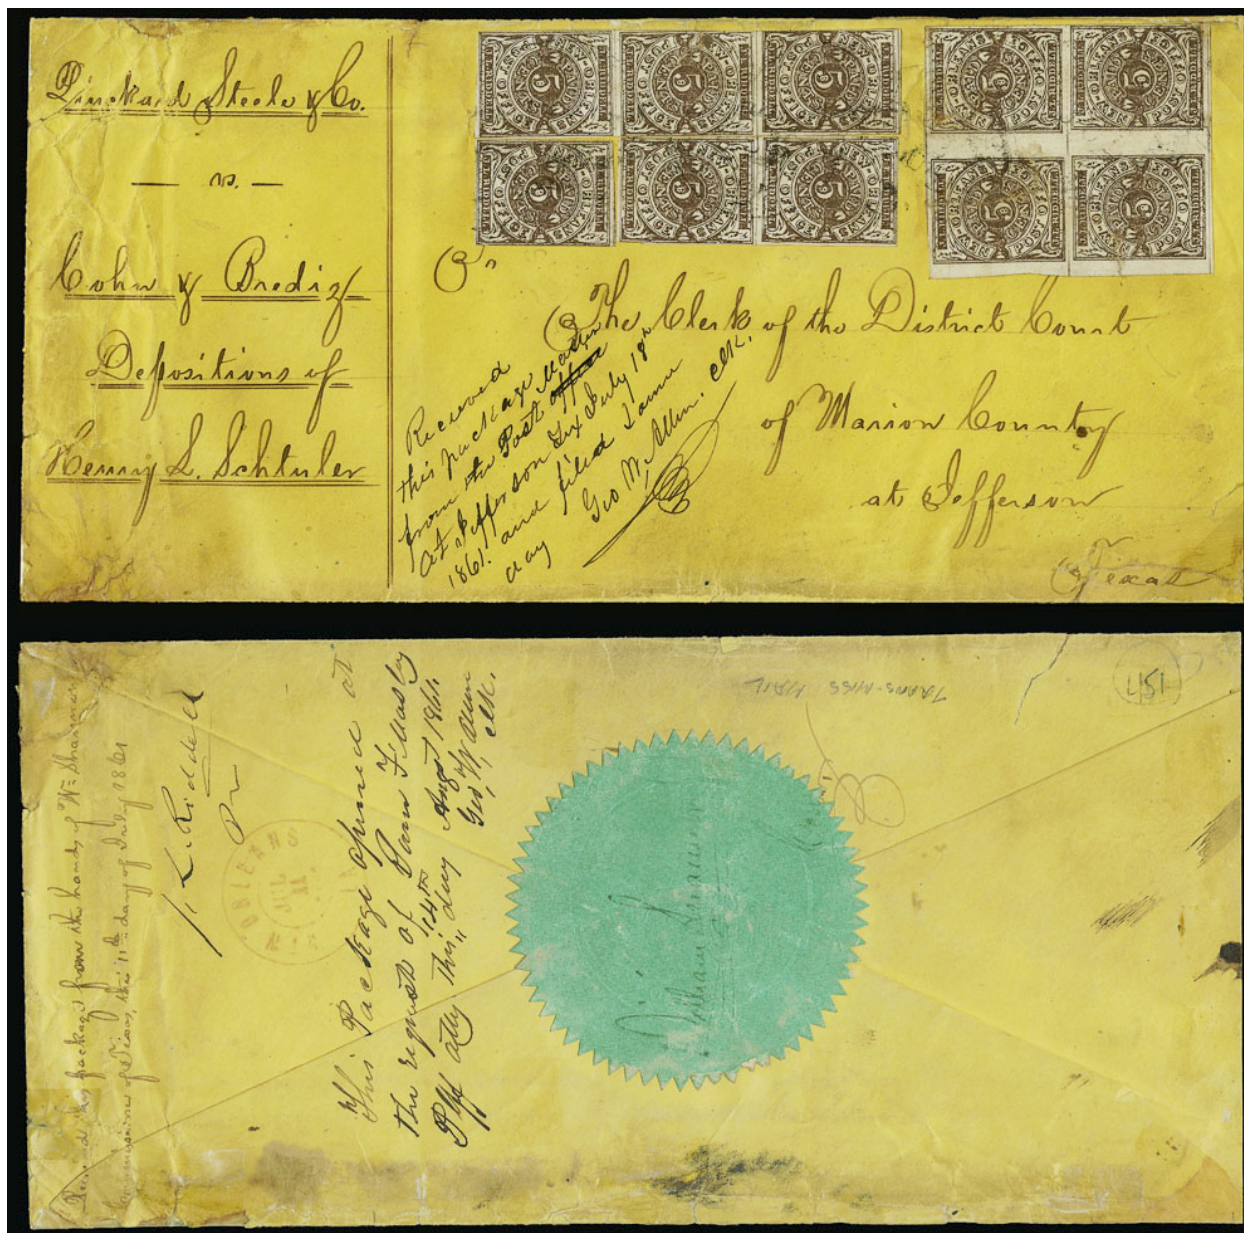 Pinckard Steele & Co.
— vs. —
Cohn & Brediz
Depositions of
Henry L. Schtuler
NEW-ORLEANS POST OFFICE
5
To
The Clerk of the District Court
of Marion County
at Jefferson
Texas
Received
this package
from the Post office
at Jefferson Tex July 18th
1861. and filed same
day Geo W, Allen. Clk.
Received this package from the hands of Wm Shannon
Commissioner of Texas, this 11th day of July 1861
J. L. Riddell
PM
N. ORLEANS
JUL
11
This Package opened at
the request of Sam F Mosley
Plff atty. this "14th" day Augst 1861.
Geo W Allen
Clk.
William Shannon
TRANS-MISS MAIL
451